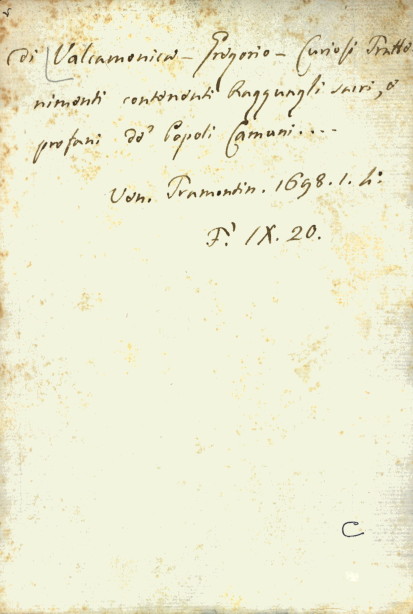 di Valcamonica - Gregorio - Curiosi Tratte
nimenti contenenti Ragguagli sacri, e
profani de' Popoli Camuni....
Ven. Tramontin. 1698. 1. 4:
F. IX. 20.
C